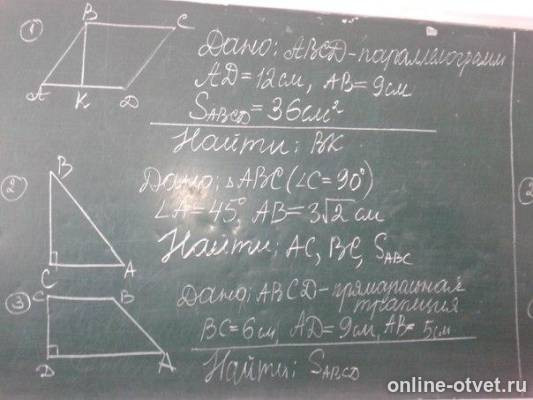 1
B C
Дано: ABCD-параллелограмм
AD=12см, AB=9см
A K D
S_ABCD=36см²
Найти: BK
2
B
Дано: △ABC (∠C=90°)
∠A=45° AB=3√2 см
C A
Найти: AC, BC, S_ABC
3
C B
Дано: ABCD-прямоугольная
трапеция
BC=6см, AD=9см, AB=5см
D A
Найти: S_ABCD
online-otvet.ru